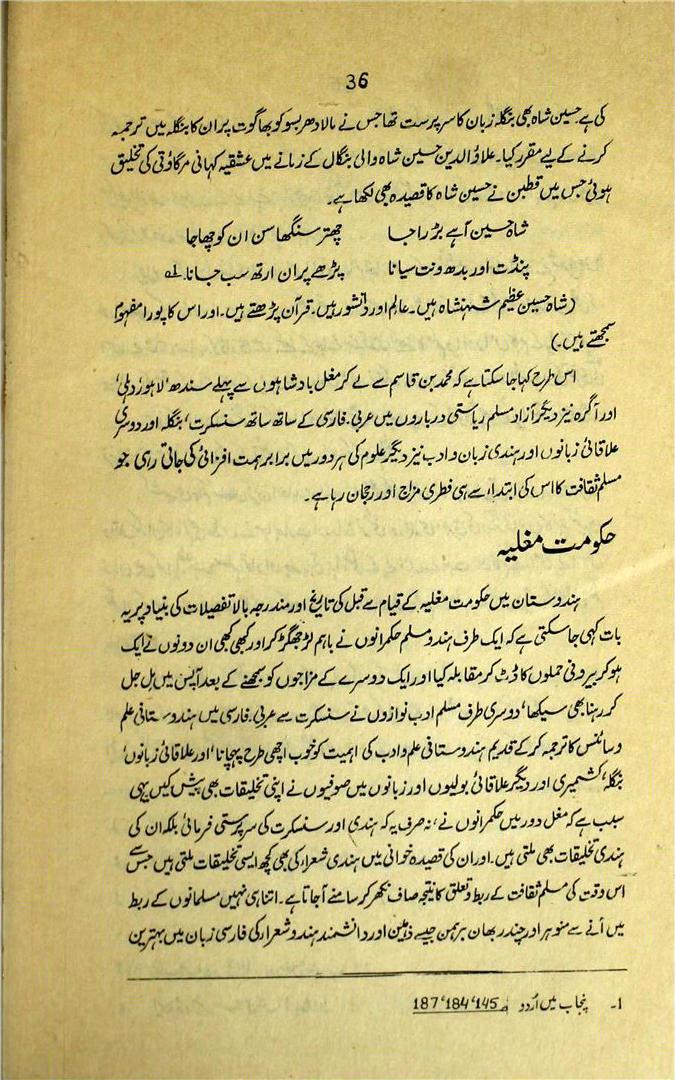 36
کی ہے حسین شاہ بھی بنگلہ زبان کا سرپرست تھا جس نے مالادھر بسو کو بھاگوت پران کا بنگلہ میں ترجمہ
کرنے کے لیے مقرر کیا۔ علاؤالدین حسین شاہ والی بنگال کے زمانے میں عشقیہ کہانی مرگاوتی کی تخلیق
ہوئی جس میں قطبن نے حسین شاہ کا قصیدہ بھی لکھا ہے۔
شاہ حسین آہے بڑ راجا چھتر سنگھاسن ان کو چھاجا
پنڈت اور بدھ ونت سیانا پڑھے پران ارتھ سب جانا۔ لہ
(شاہ حسین عظیم شہنشاہ ہیں۔ عالم اور دانشور ہیں۔ قرآن پڑھتے ہیں۔ اور اس کا پورا مفہوم
سمجھتے ہیں۔)
اس طرح کہا جا سکتا ہے کہ محمد بن قاسم سے لے کر مغل بادشاہوں سے پہلے سندھ، لاہور، دہلی،
اور آگرہ نیز دیگر آزاد مسلم ریاستی درباروں میں عربی۔ فارسی کے ساتھ ساتھ سنسکرت، بنگلہ اور دوسری
علاقائی زبانوں اور ہندی زبان و ادب نیز دیگر علوم کی ہر دور میں برابر ہمت افزائی کی جاتی رہی جو
مسلم ثقافت کا اس کی ابتداء سے ہی فطری مزاج اور رجحان رہا ہے۔
حکومت مغلیہ
ہندوستان میں حکومت مغلیہ کے قیام سے قبل کی تاریخ اور مندرجہ بالا تفصیلات کی بنیاد پر یہ
بات کہی جا سکتی ہے کہ ایک طرف ہندو مسلم حکمرانوں نے باہم لڑ جھگڑ کر اور کبھی کبھی ان دونوں نے ایک
ہو کر بیرونی حملوں کا ڈٹ کر مقابلہ کیا اور ایک دوسرے کے مزاجوں کو سمجھنے کے بعد آپس میں مل جل
کر رہنا بھی سیکھا، دوسری طرف مسلم ادب نوازوں نے سنسکرت سے عربی۔ فارسی میں ہندوستانی علم
و سائنس کا ترجمہ کر کے قدیم ہندوستانی علم و ادب کی اہمیت کو خوب اچھی طرح پہچانا، اور علاقائی زبانوں،
بنگلہ، کشمیری اور دیگر علاقائی بولیوں اور زبانوں میں صوفیوں نے اپنی تخلیقات بھی پیش کیں یہی
سبب ہے کہ مغل دور میں حکمرانوں نے، نہ صرف یہ کہ ہندی اور سنسکرت کی سرپرستی فرمائی بلکہ ان کی
ہندی تخلیقات بھی ملتی ہیں۔ اور ان کی قصیدہ خوانی میں ہندی شعراء کی بھی کچھ ایسی تخلیقات ملتی ہیں جس سے
اس وقت کی مسلم ثقافت کے ربط و تعلق کا نتیجہ صاف نکھر کر سامنے آ جاتا ہے۔ اتنا ہی نہیں مسلمانوں کے ربط
میں آنے سے منوہر اور چندر بھان برہمن جیسے ذہین اور دانشمند ہندو شعراء کی فارسی زبان میں بہترین
1۔ پنجاب میں اُردو ص 145، 184، 187